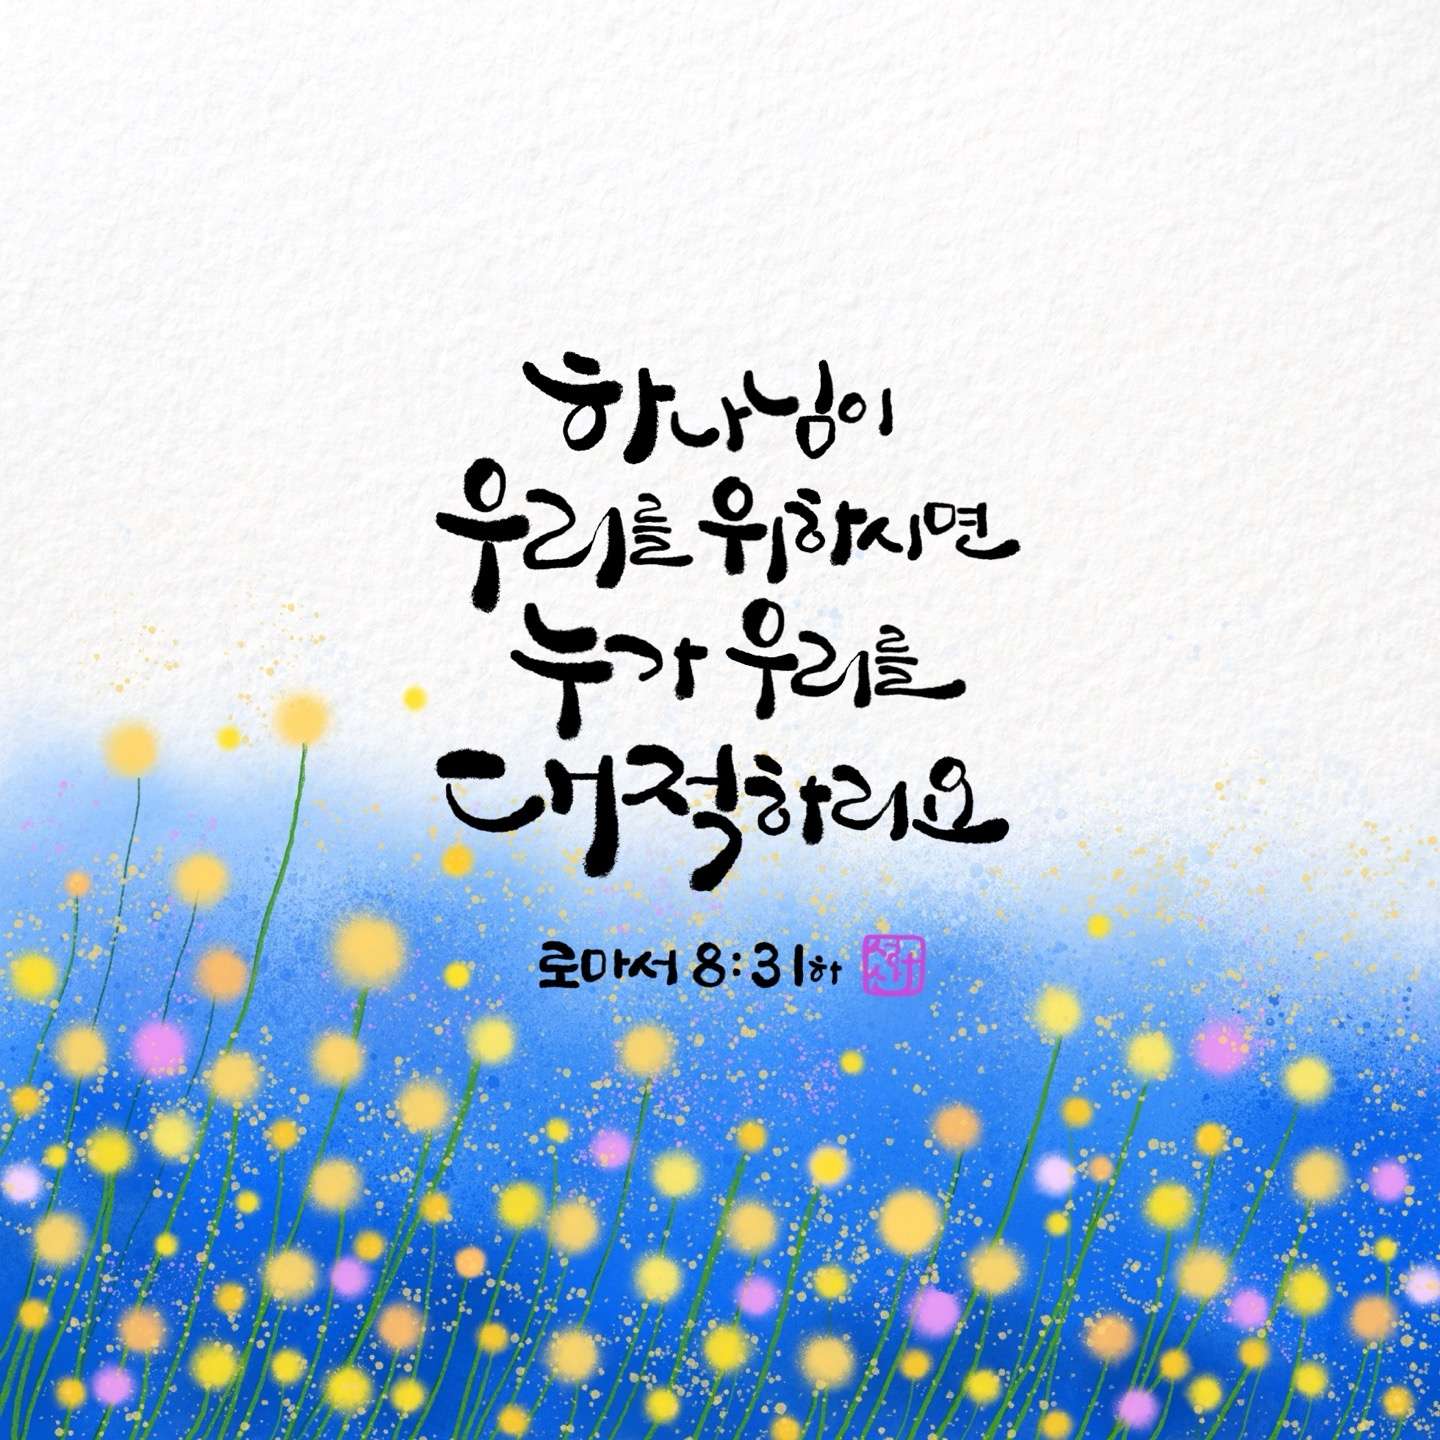 하나님이
우리를 위하시면
누가 우리를
대적하리요
로마서 8:31하